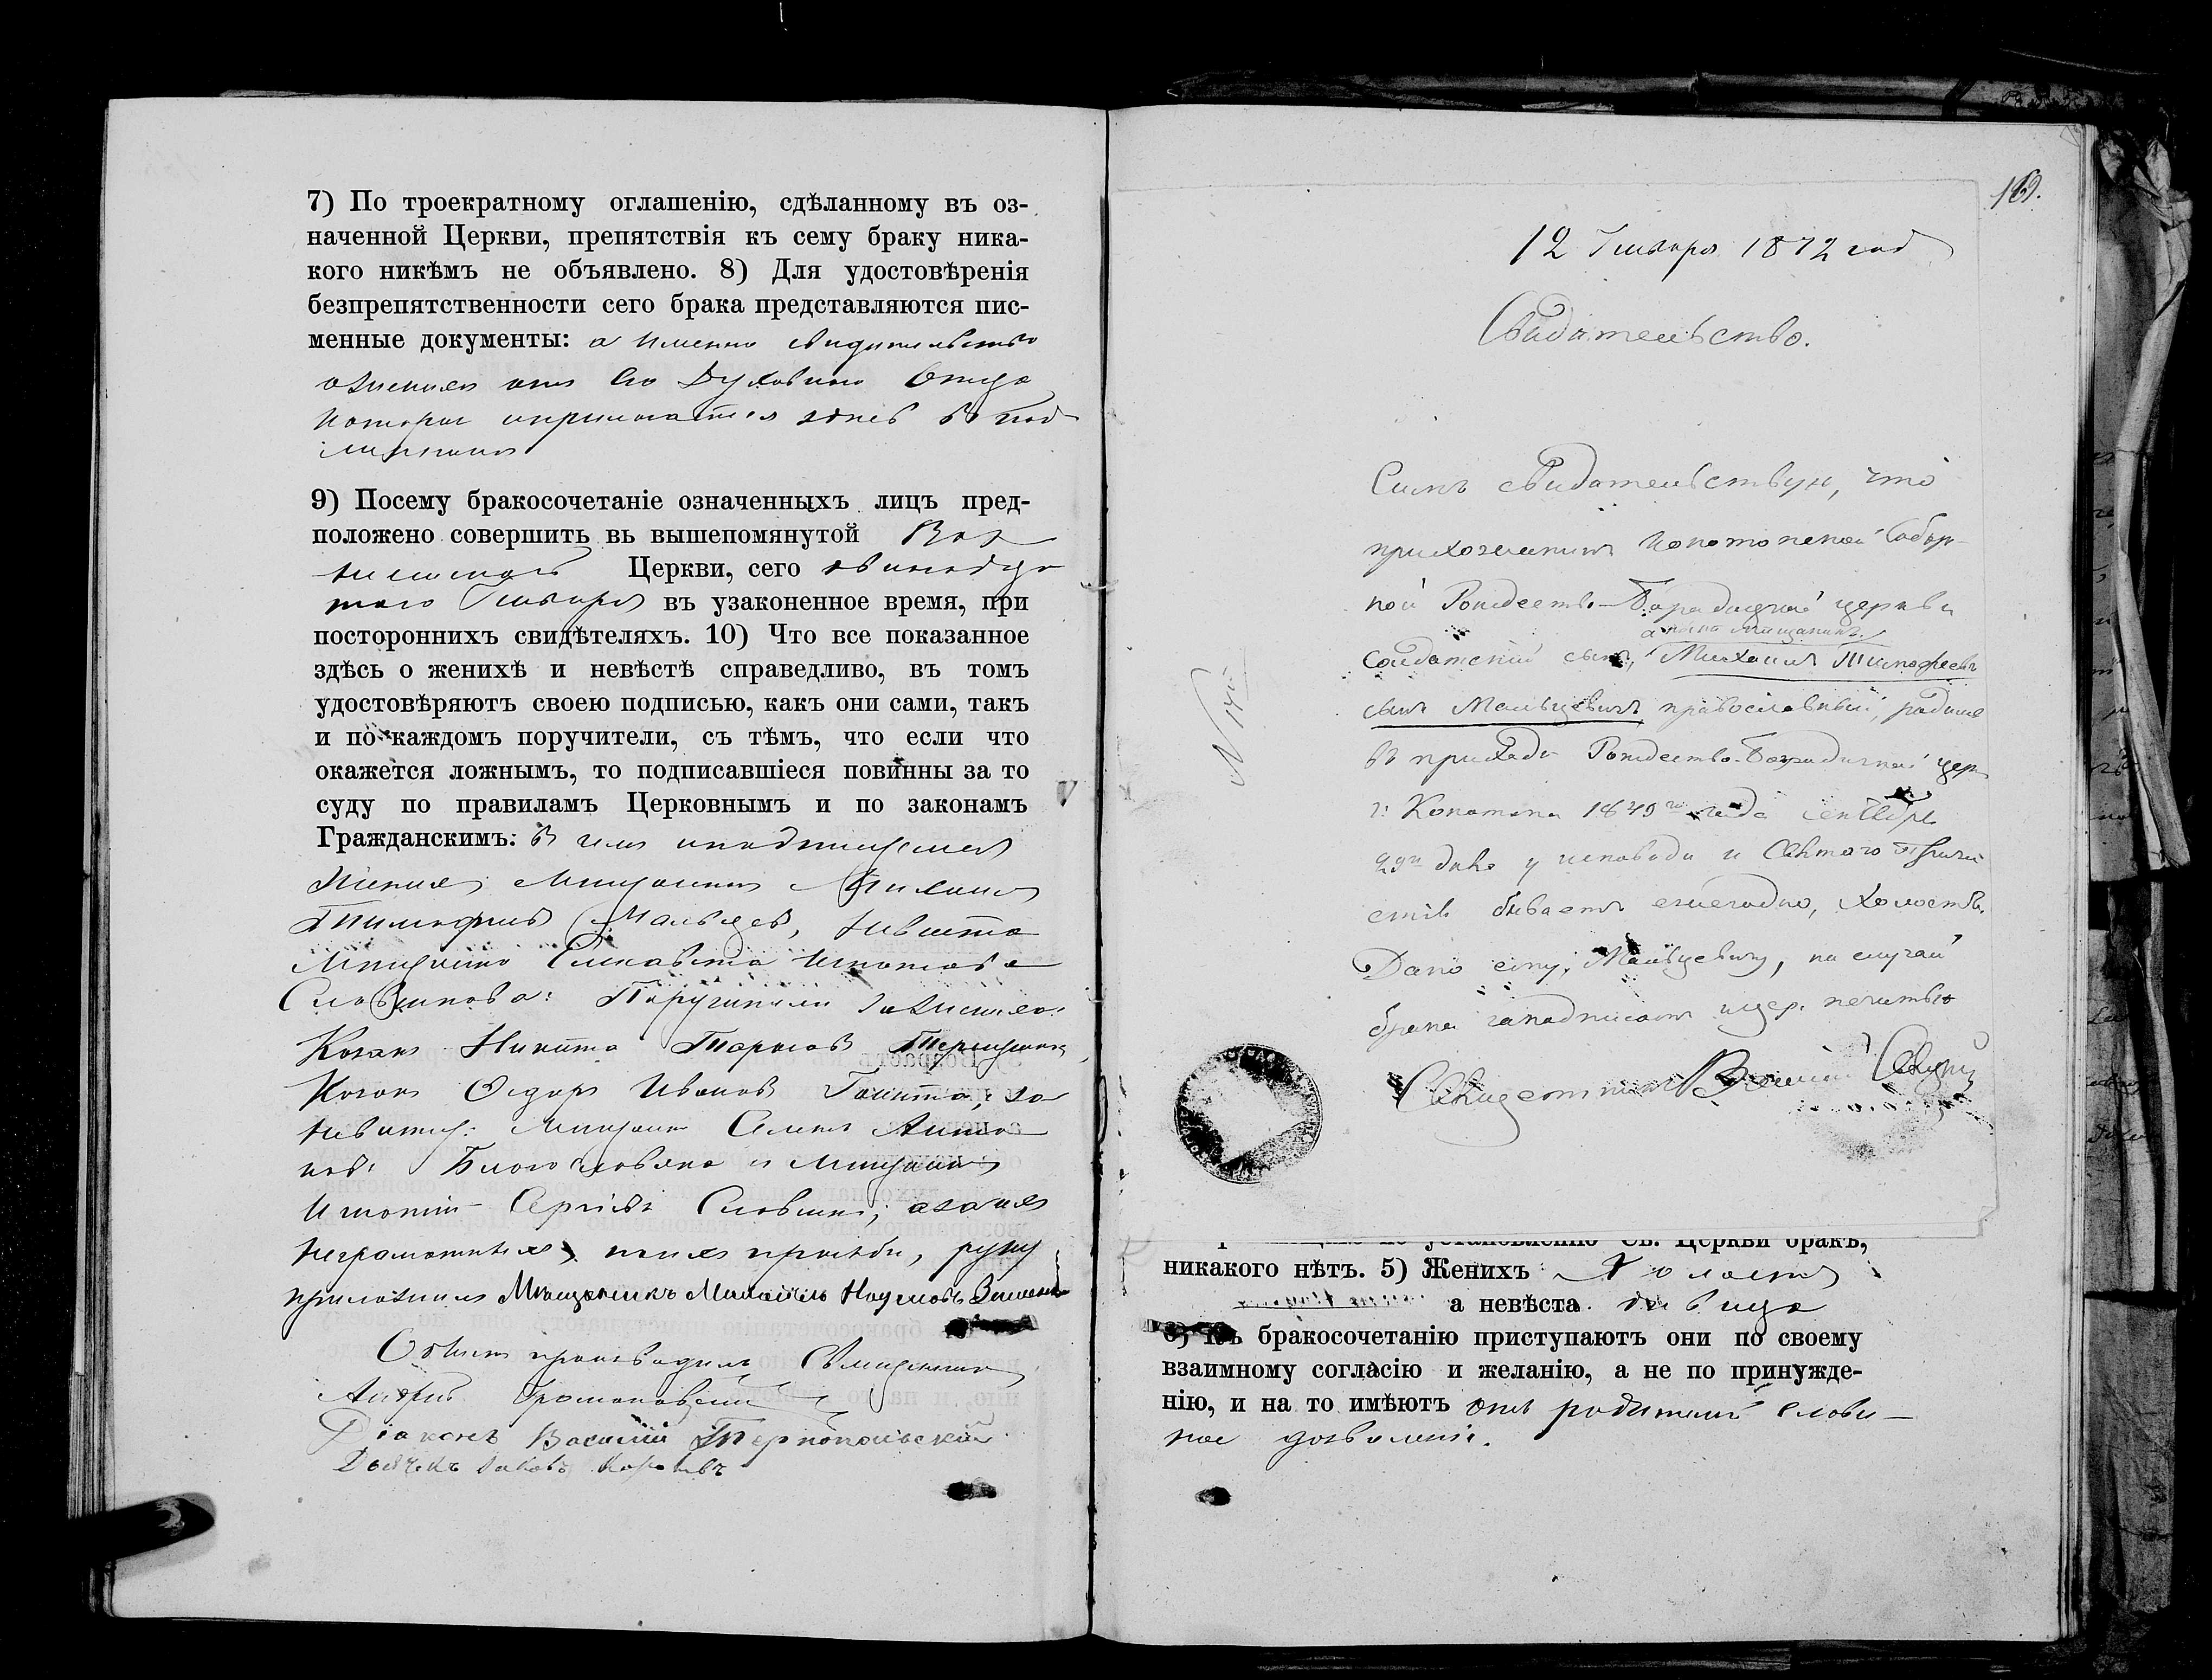 7) По троекратному оглашенію, сдѣланному въ оз-
наченной Церкви, препятствія къ сему браку ника-
кого никѣмъ не объявлено. 8) Для удостовѣренія
безпрепятственности сего брака представляются пис-
менные документы: а именно свидетельство
отъ его Духовнаго Отца
которое здесь в под
9) Посему бракосочетаніе означенныхъ лицъ пред-
положено совершить вь вышепомянутой Воз
Церкви, сего
того Генваря въ узаконенное время, при
постороннихъ свидѣтеляхъ. 10) Что все показанное
здѣсь о женихѣ и невѣстѣ справедливо, въ томъ
удостовѣряютъ своею подписью, какъ они сами, такъ
и по каждомъ поручители, съ тѣмъ, что если что
окажется ложнымъ, то подписавшіеся повинны за то
суду по правиламъ Церковнымъ и по законамъ
Гражданскимъ: В чем
жених мещанин Михаил
Тимофеев Мальцев, невеста
мещанка Елисавета Игнатова
Словинкова: Поручители
Козак Никита Тарасов
Козак Федор Иванов за
невесту: мещанин Анто
нов и мещанин
Игнатий Сергиев а за них
неграмотных, по их просьбе, руку
приложил Мещанинъ Михаилъ Наумовъ
Обыск производил Священник
Андрей
Діаконъ Василій Тернопольскій
Дьячекъ Яковъ
169.
12 Генваря 1872 год
Свидетельство.
Симъ свидетельствую, что
прихожанинъ Конотопской Собор-
ной Рождество-Богородичной церкви
а ныне мещанинъ
солдатский сынъ, Михаилъ Тимофеевъ
сынъ Мальцевичъ православный, родился
въ приходе Рождество-Богородичной цер
г: Конотопа 1849го года сентября
дня у исповеди и Святого Прича
стія бываетъ ежегодно, холостъ.
Дано ему, Мальцевичу, на случай
брака за подписомъ и цер. печатью
Священникъ
N 14
никакого нѣтъ. 5) Женихъ Холостъ
а невѣста девица
6) Къ бракосочетанію приступаютъ они по своему
взаимному согласію и желанію, а не по принужде-
нію, и на то имѣютъ отъ родителей слове-
ное дозволеніе.